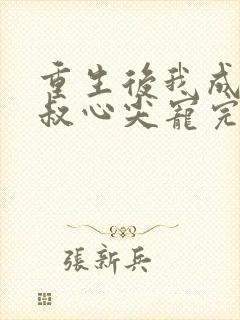 重生後我成
叔心尖寵完
張新兵